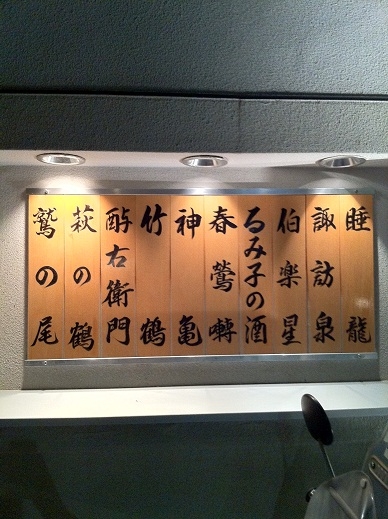 睡龍
諏訪泉
伯楽星
るみ子の酒
春鶯囀
神亀
竹鶴
酉右衛門
萩の鶴
鷲の尾